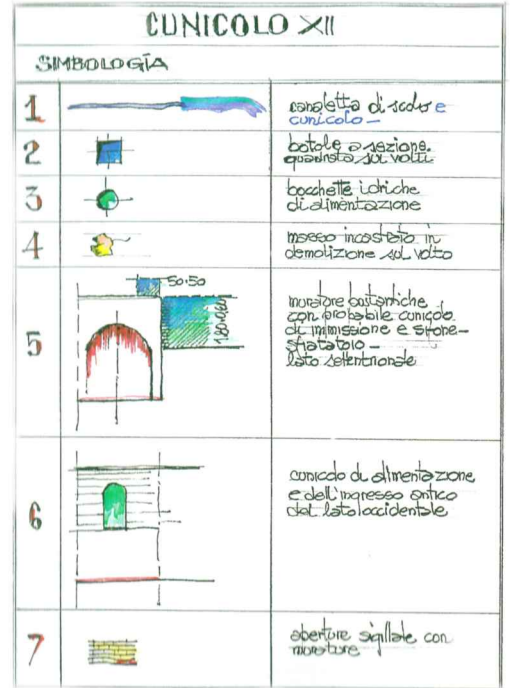 CUNICOLO XII
SIMBOLOGÍA
1
canaletta di scolo e
cunicolo -
2
botole a sezione
quadrata sui volti
3
bocchette idriche
di alimentazione
4
masso incastrato in
demolizione sul volto
5
50·50
murature
con probabile cunicolo
di immissione e
sfiatatoio -
lato settentrionale
6
cunicolo di alimentazione
e dell'ingresso antico
del lato occidentale
7
aperture sigillate con
murature